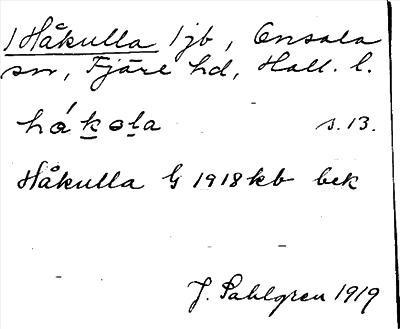 1 Håkulla 1 jb, Onsala
sn, Fjäre hd, Hall. l.
hókola s. 13.
Håkulla G 1918 kb bek
J. Sahlgren 1919